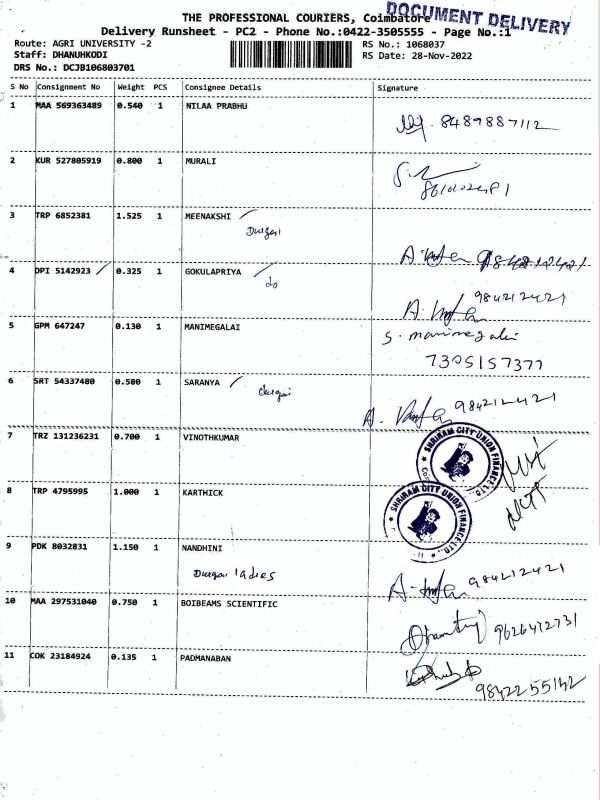 DOCUMENT DELIVERY
THE PROFESSIONAL COURIERS, Coimbatore
Delivery Runsheet - PC2 - Phone No.:0422-3505555 - Page No.:1
Route: AGRI UNIVERSITY -2
RS No.: 1068037
Staff: DHANUHKODI
RS Date: 28-Nov-2022
DRS No.: DCJB106803701
S No Consignment No Weight PCS Consignee Details Signature
1 MAA 569363489 0.540 1 NILAA PRABHU
8489887112
2 KUR 527805919 0.800 1 MURALI
3 TRP 6852381 1.525 1 MEENAKSHI
Durgai
4 DPI 5142923 0.325 1 GOKULAPRIYA
do
984212421
5 GPM 647247 0.130 1 MANIMEGALAI
S. manimegalai
7305157377
6 SRT 54337480 0.580 1 SARANYA
durgai
984212421
7 TRZ 131236231 0.700 1 VINOTHKUMAR
SHRIRAM CITY UNION FINANCE LTD.
8 TRP 4795995 1.000 1 KARTHICK
SHRIRAM CITY UNION FINANCE LTD.
9 PDK 8032831 1.150 1 NANDHINI
Durgai ladies
984212421
10 MAA 297531040 0.750 1 BOIBEAMS SCIENTIFIC
9626472731
11 COK 23184924 0.135 1 PADMANABAN
9842255142